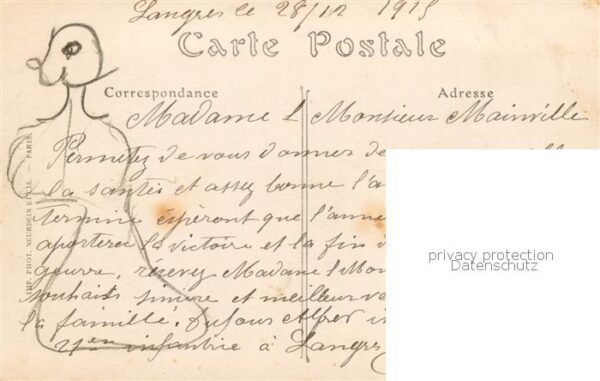 Langres le 28/12 1915
Carte Postale
Correspondance
Adresse
Madame & Monsieur Mainville
Permetez de vous donner de
la santés et assez bonne l'a
termine éspèront que l'anne
aporterea la victoire et la fin d
guerre, récevez Madame & Mon
souhaits sincere et meilleur ve
la famillé. Dufour Alfred
21em infantrie à Langres
IMP. PHOT. NEURDEIN ET CIE. — PARIS
privacy protection
Datenschutz